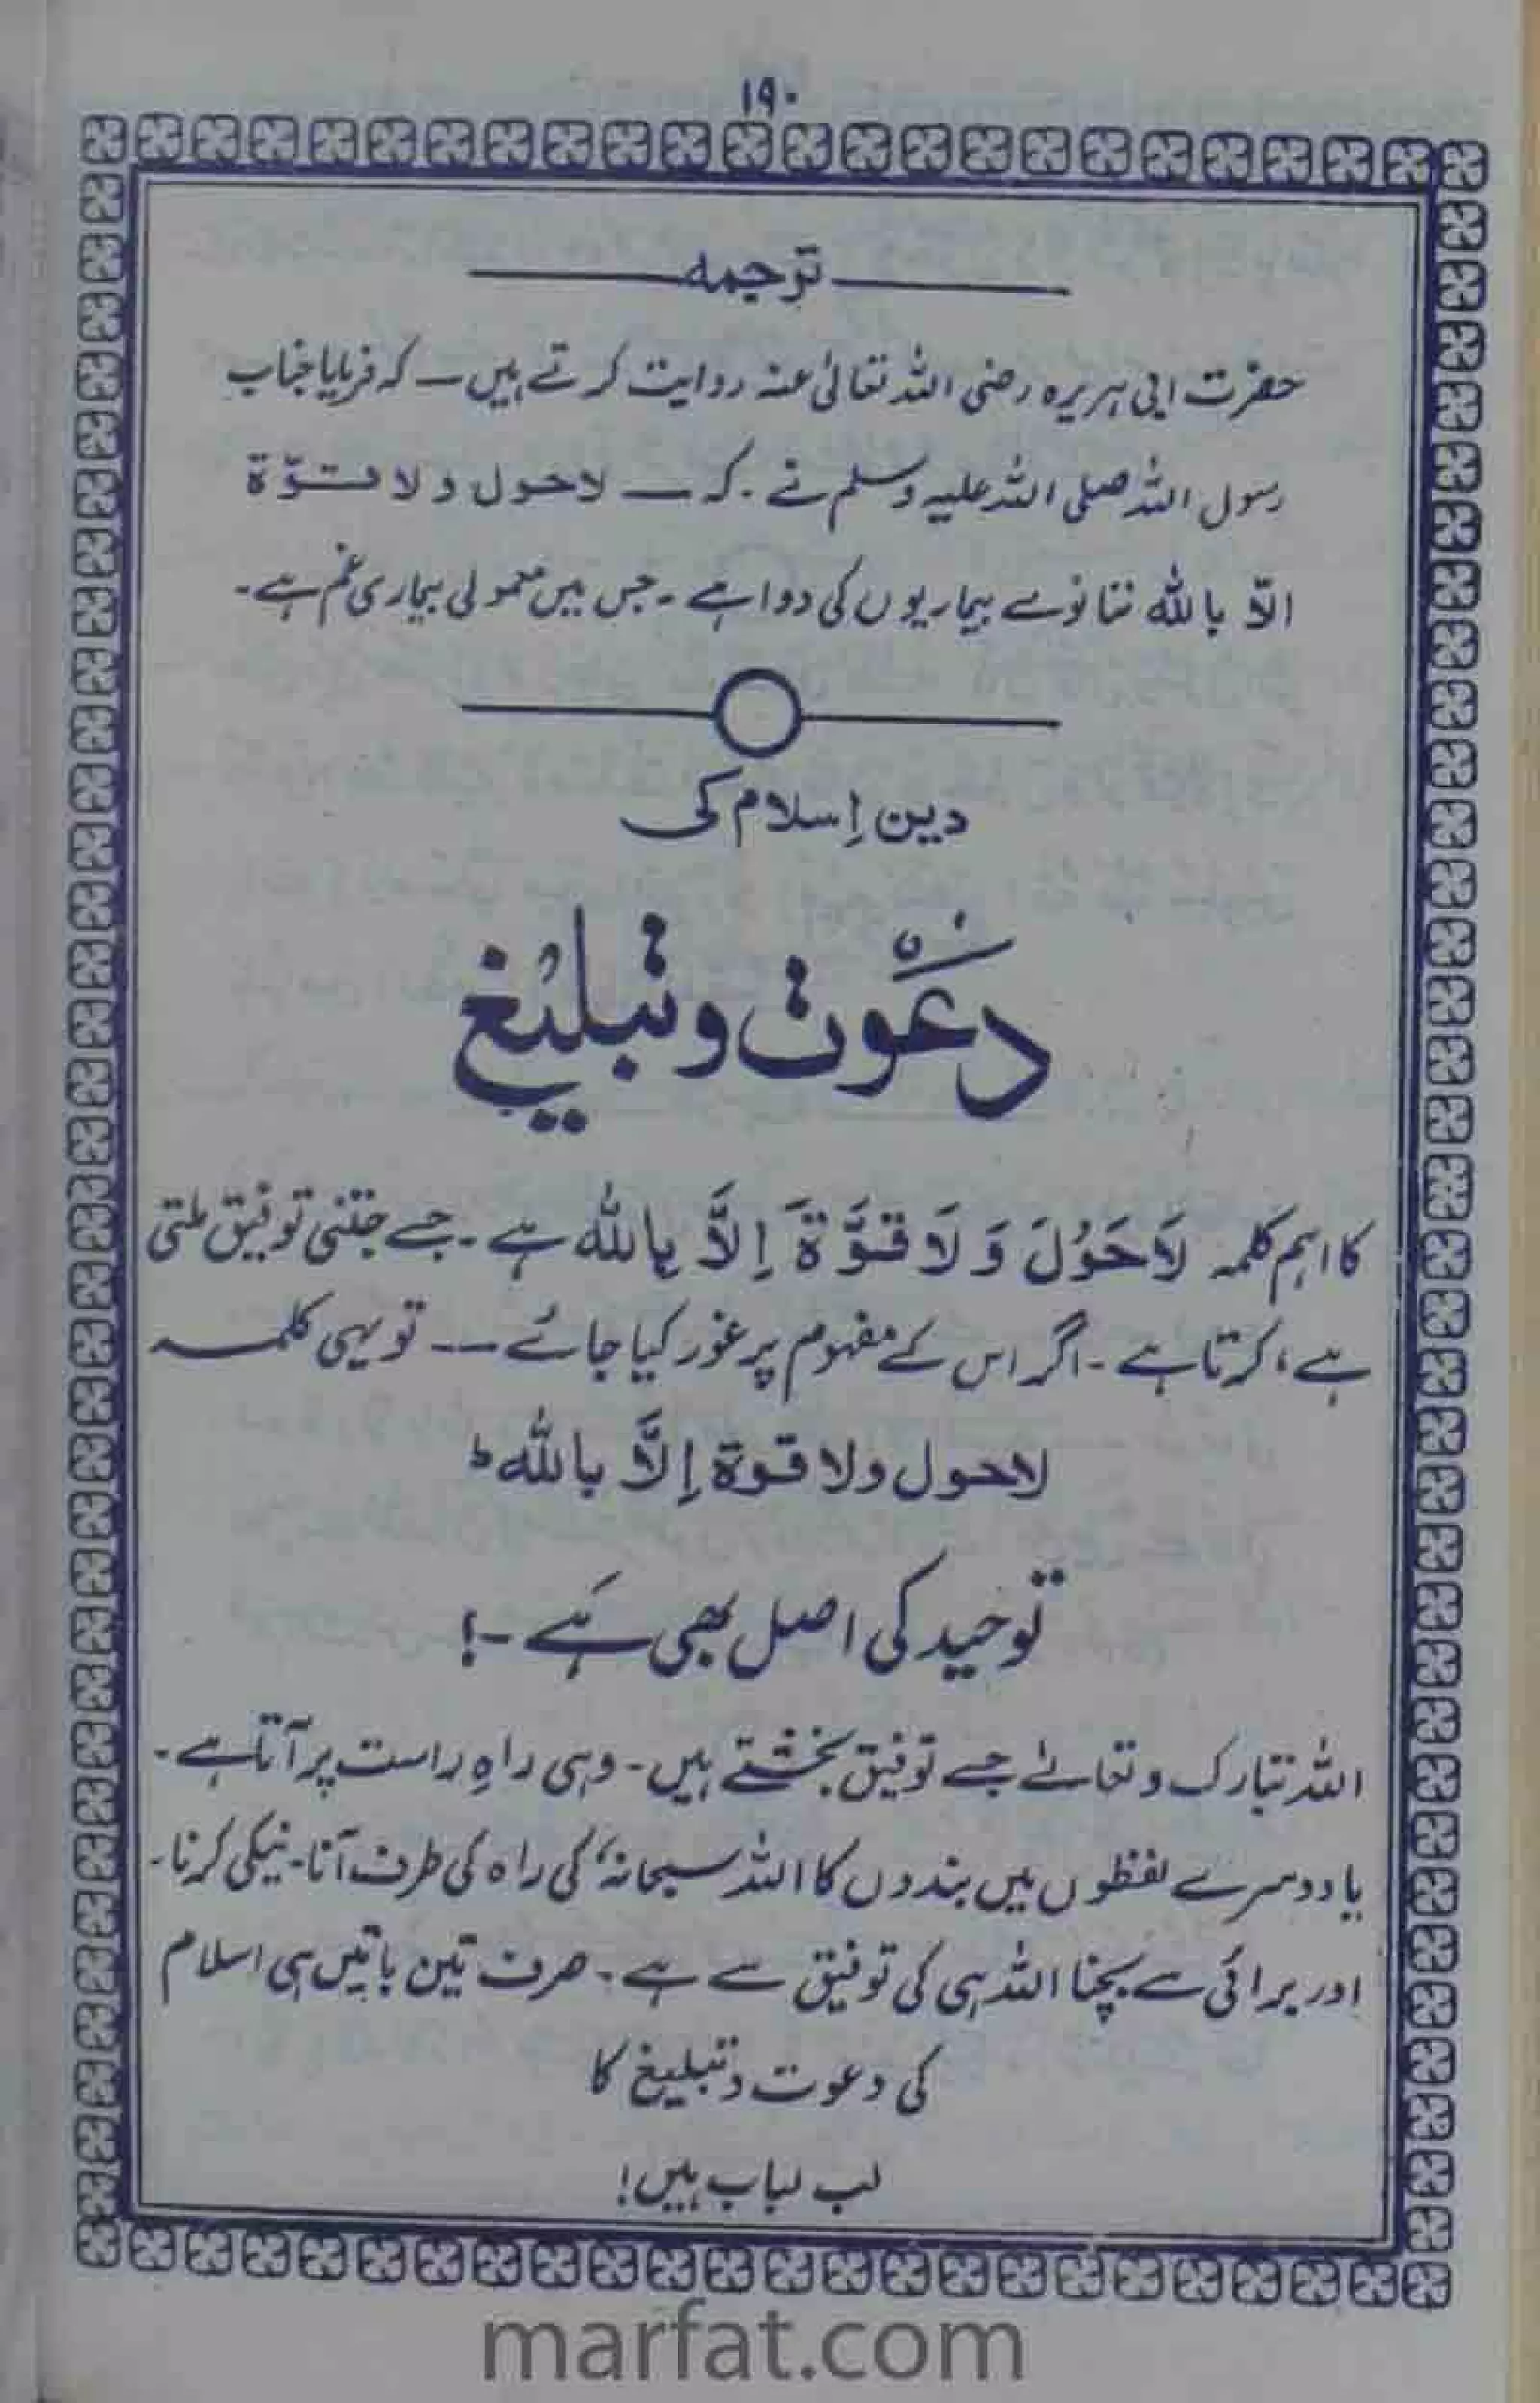 ۱۹۰
ترجمه
حضرت ابی ہریرہ رضی اللہ تعالیٰ عنہ روایت کرتے ہیں — کہ فرمایا جناب
رسول اللہ صلی اللہ علیہ وسلم نے ۔ کہ — لاحول ولا قوّة
الاّ باللّٰه ننانوے بیماریوں کی دوا ہے ۔ جس میں معمولی بیماری غم ہے ۔
دین اِسلام کی
دَعْوت و تبلیْغ
کا اہم کلمہ لَاحَوْلَ وَلَا قُوَّةَ اِلَّا بِاللّٰه ہے ۔ جسے جتنی توفیق ملتی
ہے، کرتا ہے ۔ اگر اس کے مفہوم پر غور کیا جائے -- تو یہی کلمہ
لاحول ولا قوة اِلَّا باللّٰه ط
توحید کی اصل بھی ہَے ۔!
اللہ تبارک و تعالےٰ جسے توفیق بخشتے ہیں ۔ وہی راہِ راست پر آتا ہے ۔
یا دوسرے لفظوں میں بندوں کا اللہ سبحانہٗ کی راہ کی طرف آنا ۔ نیکی کرنا ۔
اور برائی سے بچنا اللہ ہی کی توفیق سے ہے ۔ صرف تین باتیں ہی اسلام
کی دعوت و تبلیغ کا
لب لباب ہیں!
marfat.com